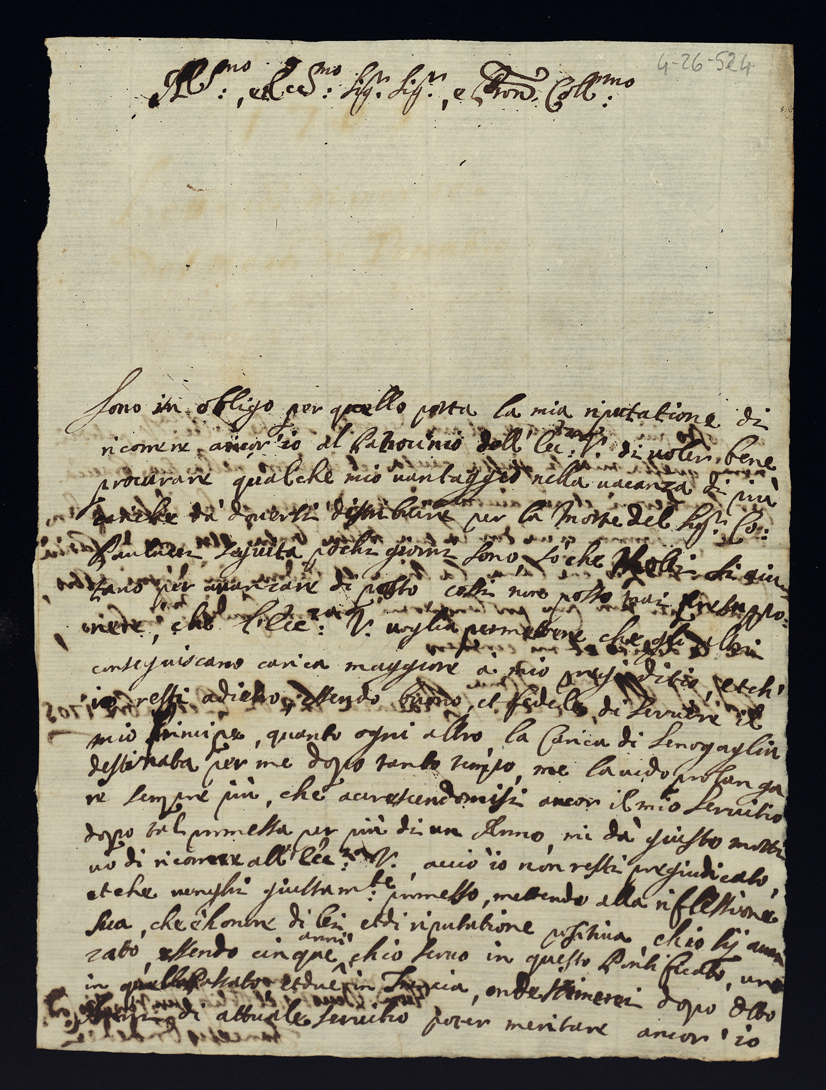 4-26-524
Ill:mo, et Ecc:mo Sig.r Sig.r, e Pron. Coll:mo
Sono in obligo per quello porta la mia riputatione di
ricorrere ancor'io al Patrocinio dell'Ecc:za V. di voler bene
procurare qualche mio vantaggio nella vacanza di più
cariche da doversi distribuire per la morte del Sig.r Co:
seguita pochi giorni sono, sò che molti si aiu-
tano per avanzare di posto così non posso mai presuppo-
nere, che l'Ecc:za V. voglia permettere che gli altri
conseguiscano carica maggiore a mio pregiuditio, et ch'
io resti adietro, essendo buono, et fedele di servire il
mio Principe, quanto ogni altro la Carica di Senogaglia
destinata per me dopo tanto tempo, me la vedo prolunga
re sempre più, che accrescendomisi ancor il mio servitio
dopo tal promessa per più di un Anno, mi dà giusto motti
vo di ricorrere all'Ecc:za V., acciò io non resti pregiudicato,
et che venghi giustam:te promosso, mettendo alla riflessione
sua, che è honore di lei et di riputatione positiva, ch'io sij avan
zato, essendo cinque anni ch'io servo in questo Pontificato, uno
in quello passato et due in, onde stimerei dopo otto
Anni di attuale servitio poter meritare ancor'io